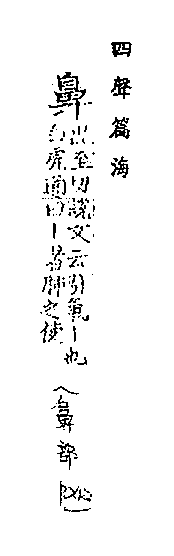 四聲篇海
鼻
至切說文云引氣丨也
白虎通曰丨者肺之使
(鼻部